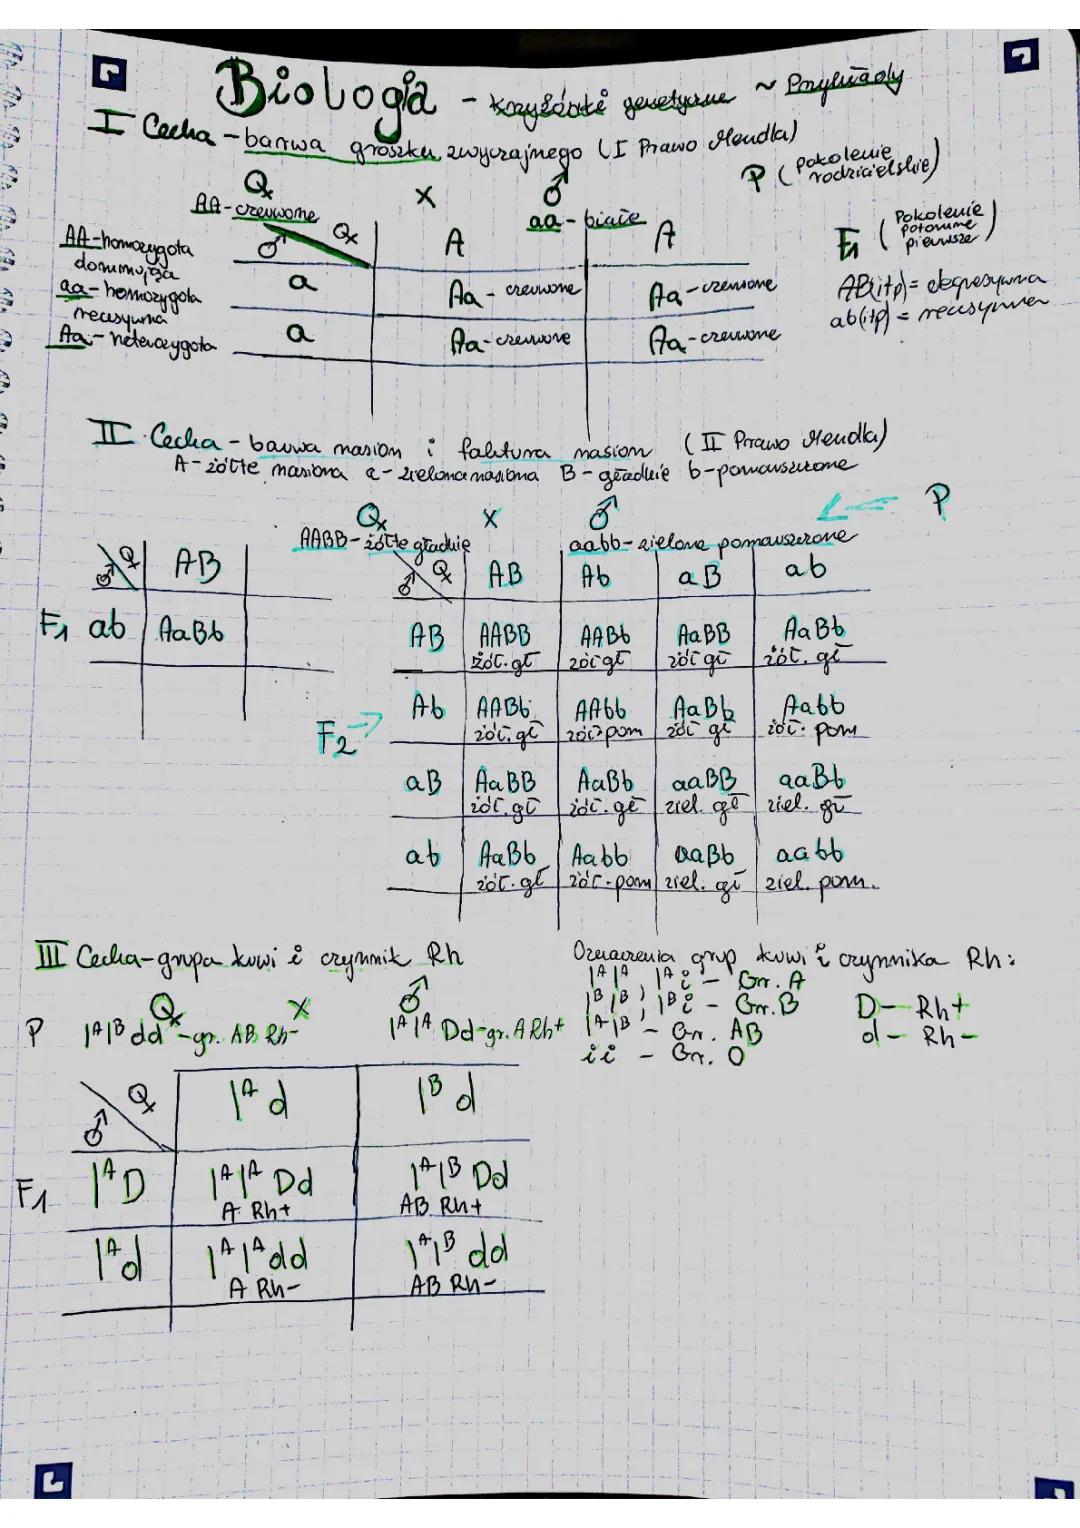 Biologia - krzyżówki genetyczne ~ Przykłady
I Cecha - barwa groszku zwyczajnego (I Prawo Mendla)
P (pokolenie rodzicielskie)
♀ X ♂
AA-czerwone aa-białe
F1 (Pokolenie potomne pierwsze)
AA-homozygota dominująca
aa-homozygota recesywna
Aa-heterozygota
♂ ♀ A A
a Aa-czerwone Aa-czerwone
a Aa-czerwone Aa-czerwone
AB(itp)=
ab(itp)= recesywne
II Cecha - barwa nasion i faktura nasion (II Prawo Mendla)
A-żółte nasiona a-zielone nasiona B-gładkie b-pomarszczone
♀ X ♂ P
AABB-żółte gładkie aabb-zielone pomarszczone
♂ ♀ AB
F1 ab AaBb
F2
♂ ♀ AB Ab aB ab
AB AABB AABb AaBB AaBb
żół.gł żół gł żół gł żół. gł
Ab AABb AAbb AaBb Aabb
żół.gł żół pom żół gł żół. pom
aB AaBB AaBb aaBB aaBb
żół.gł żół.gł ziel. gł ziel. gł
ab AaBb Aabb aaBb aabb
żół.gł żół.pom ziel. gł ziel. pom.
III Cecha-grupa krwi i czynnik Rh
♀ X ♂
P IAIB dd -gr. AB Rh- IAIA Dd-gr. A Rh+
Oznaczenia grup krwi i czynnika Rh:
IAIA, IAi - Gr. A
IBIB, IBi - Gr. B
IAIB - Gr. AB
ii - Gr. O
D - Rh+
d - Rh-
♂ ♀ IA d IB d
F1 IA D IAIA Dd IAIB Dd
A Rh+ AB Rh+
IA d IAIA dd IAIB dd
A Rh- AB Rh-